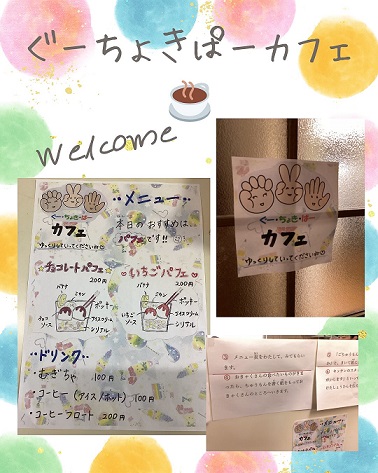 ぐーちょきぱーカフェ
welcome
ぐー・ちょき・ぱー
カフェ
ゆっくりしていってくださいね
メニュー
本日のおすすめは、
パフェです!!
チョコレートパフェ
200円
バナナ
ミカン
ポッキー
チョコソース
アイスクリーム
シリアル
いちごパフェ
200円
バナナ
ミカン
ポッキー
いちごソース
アイスクリーム
シリアル
ドリンク
・むぎちゃ 100円
・コーヒー(アイス/ホット) 100円
・コーヒーフロート 200円
ぐー・ちょき・ぱー
カフェ
ゆっくりしていってくださいね
③ メニュー表をわたして、みてもらいます。
④ お客さ